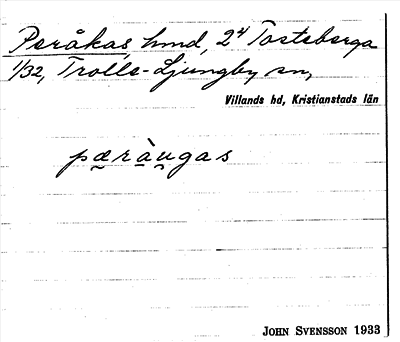 Peråkas, hmd, 2⁴ Tosteberga
1/32, Trolle-Ljungby sn,
Villands hd, Kristianstads län
pæràugas
JOHN SVENSSON 1933